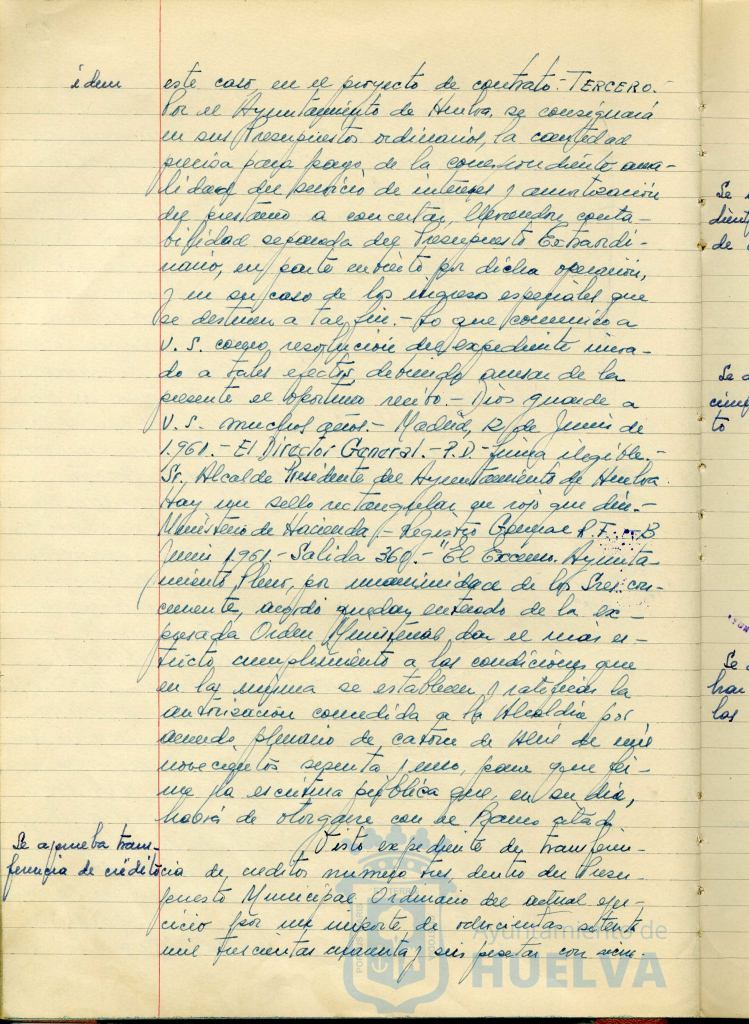 idem
este caso en el proyecto de contrato.- TERCERO.-
Por el Ayuntamiento de Huelva, se consignará
en sus Presupuestos ordinarios, la cantidad
precisa para pago, de la correspondiente anua-
lidad del servicio de intereses y amortización
del prestamo a concertar, llevandose conta-
bilidad separada del Presupuesto Extraordi-
nario, en parte cubierto por dicha operación,
y en su caso de los ingresos especiales que
se destinen a tal fin.- Lo que comunico a
V. S. como resolución del expediente incoa-
do a tales efectos debiendo acusar de la
presente el oportuno recibo.- Dios guarde a
V. S. muchos años.- Madrid, 12 de Junio de
1.961.- El Director General.- P.D.- firma ilegible.-
Sr. Alcalde Presidente del Ayuntamiento de Huelva.
Hay un sello rectangular en rojo que dice.-
Ministerio de Hacienda.- Registro General
Junio 1961.- Salida 360.- "El Excmo. Ayunta-
miento Pleno, por unanimidad de los Sres. con-
currente, acordó quedar enterado de la ex-
presada Orden Ministerial dar el más es-
tricto cumplimiento a las condiciones que
en la misma se establecen y ratificar la
autorización concedida a la Alcaldía por
acuerdo plenario de catorce de Abril de mil
novecientos sesenta y uno, para que fir-
me la escritura pública que, en su día,
habrá de otorgarse con el Banco citado
Se aprueba trans-
ferencia de crédito
Visto expediente de transferen-
cia de creditos numero tres, dentro del Presu-
puesto Municipal Ordinario del actual ejer-
cicio por un importe de setenta
mil trescientas cuarenta y seis pesetas con
Ayuntamiento de
HUELVA
Se
de
Se
to
Se
las